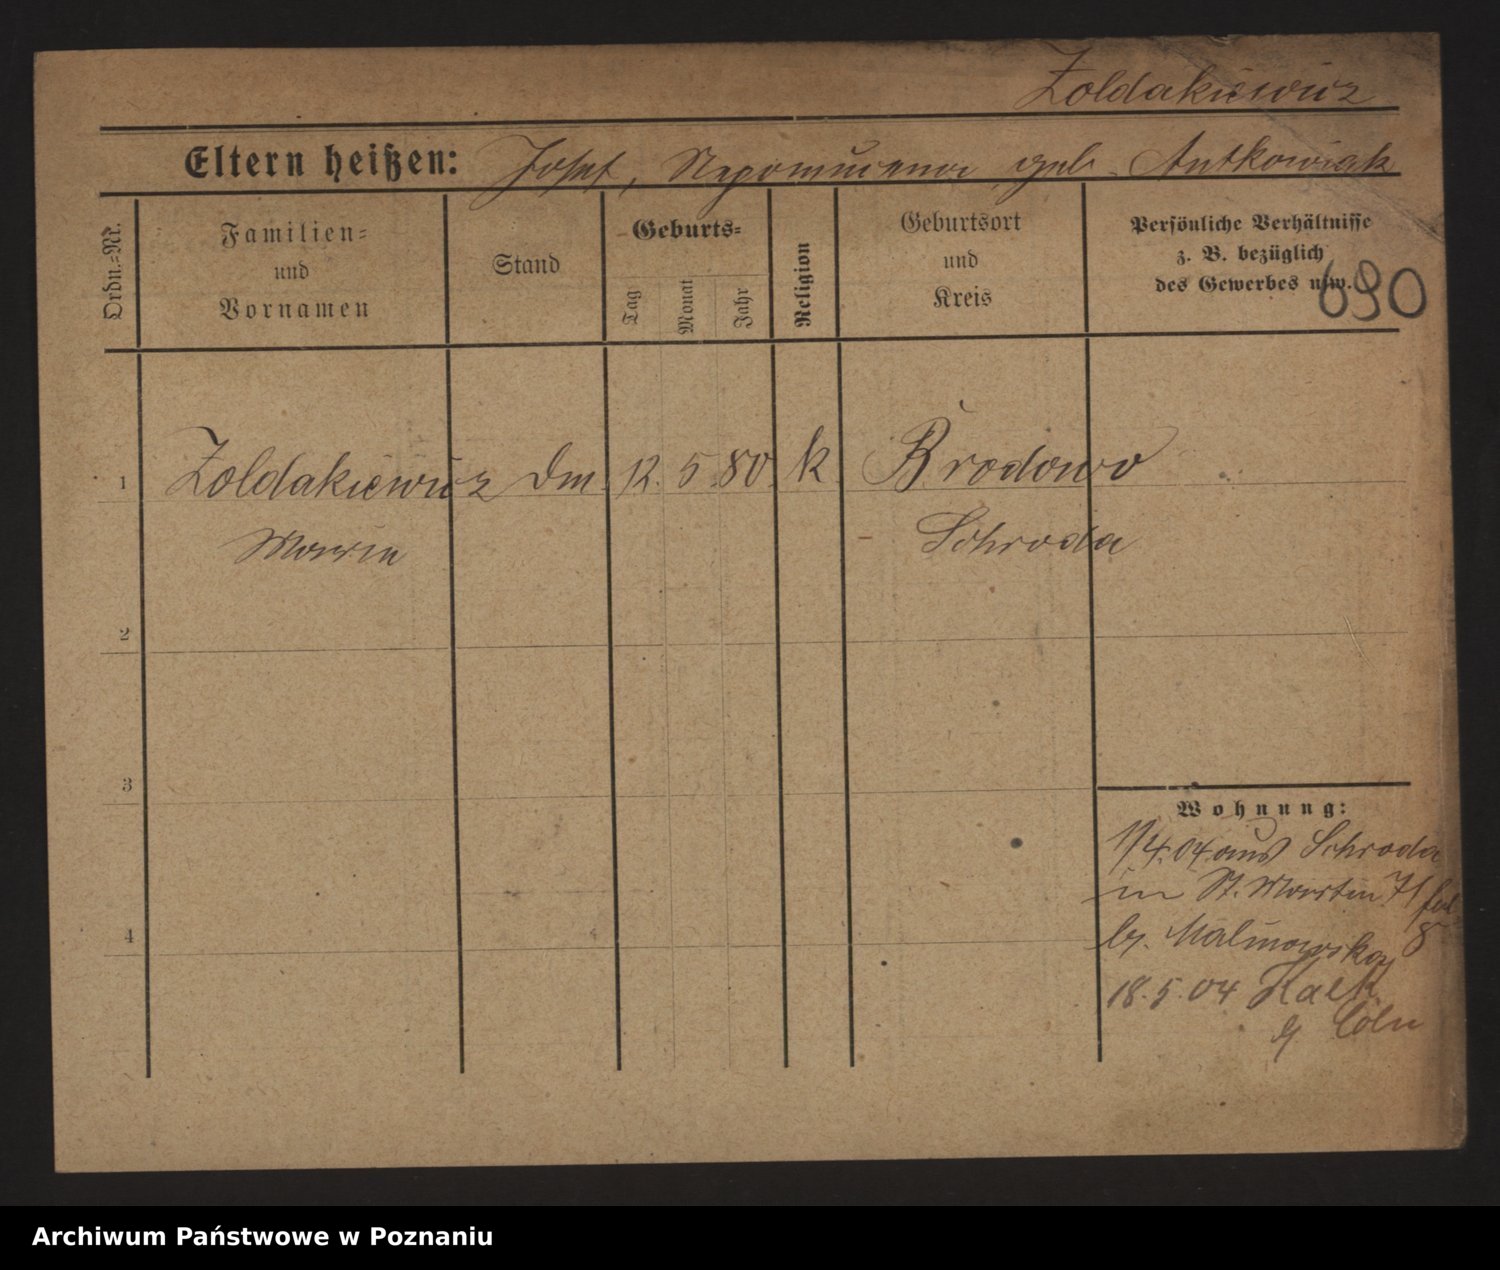 Zoldakiewicz
Eltern heißen: Josef, Nepomucena geb. Antkowiak
Ordn.=Nr.
Familien=
und
Vornamen
Stand
Geburts=
Tag
Monat
Jahr
Religion
Geburtsort
und
Kreis
Persönliche Verhältnisse
z. B. bezüglich
des Gewerbes usw.
690
1 Zoldakiewicz Dm. 12. 5. 80. k. Brodowo
Maria Schroda
2
3
4
Wohnung:
1/4.04 aus Schroda
in St. Martin 71
by. Malinowska 8
18.5.04 Kalk
b/ Cöln
Archiwum Państwowe w Poznaniu